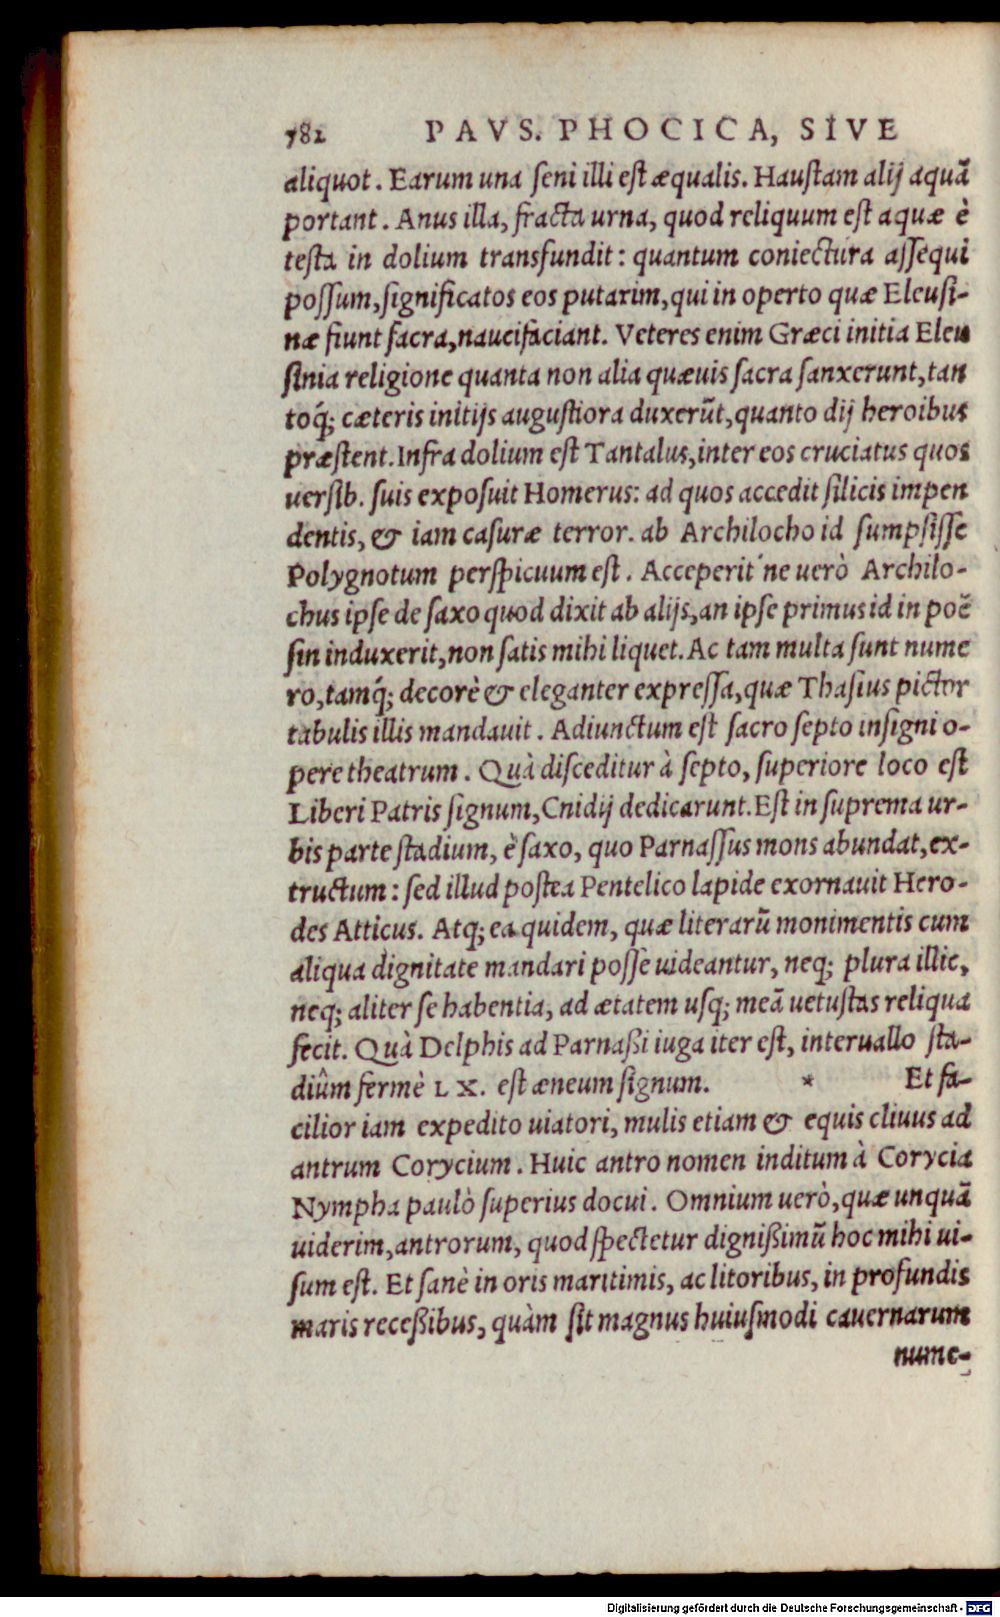 782 PAVS. PHOCICA, SIVE
aliquot. Earum una seni illi est æqualis. Haustam alij aquã
portant. Anus illa, fracta urna, quod reliquum est aquæ è
testa in dolium transfundit: quantum coniectura assequi
possum, significatos eos putarim, qui in operto quæ Eleusi-
næ fiunt sacra, naucifaciant. Veteres enim Græci initia Eleu
sinia religione quanta non alia quæuis sacra sanxerunt, tan
toq́; cæteris initijs augustiora duxerũt, quanto dij heroibus
præstent. Infra dolium est Tantalus, inter eos cruciatus quos
uersib. suis exposuit Homerus: ad quos accedit silicis impen
dentis, & iam casuræ terror. ab Archilocho id sumpsisse
Polygnotum perspicuum est. Acceperit'ne uerò Archilo-
chus ipse de saxo quod dixit ab alijs, an ipse primus id in poẽ
sin induxerit, non satis mihi liquet. Ac tam multa sunt nume
ro, tamq́; decorè & eleganter expressa, quæ Thasius pictor
tabulis illis mandauit. Adiunctum est sacro septo insigni o-
pere theatrum. Quà disceditur à septo, superiore loco est
Liberi Patris signum, Cnidij dedicarunt. Est in suprema ur-
bis parte stadium, è saxo, quo Parnassus mons abundat, ex-
tructum: sed illud postea Pentelico lapide exornauit Hero-
des Atticus. Atq; ea quidem, quæ literarũ monimentis cum
aliqua dignitate mandari posse uideantur, neq; plura illic,
neq; aliter se habentia, ad ætatem usq; meã uetustas reliqua
fecit. Quà Delphis ad Parnaßi iuga iter est, interuallo sta-
diûm fermè LX. est æneum signum. * Et fa-
cilior iam expedito uiatori, mulis etiam & equis cliuus ad
antrum Corycium. Huic antro nomen inditum à Corycia
Nympha paulò superius docui. Omnium uerò, quæ unquã
uiderim, antrorum, quod spectetur dignißimũ hoc mihi ui-
sum est. Et sanè in oris maritimis, ac litoribus, in profundis
maris receßibus, quàm sit magnus huiusmodi cauernarum
nume-
Digitalisierung gefördert durch die Deutsche Forschungsgemeinschaft - DFG